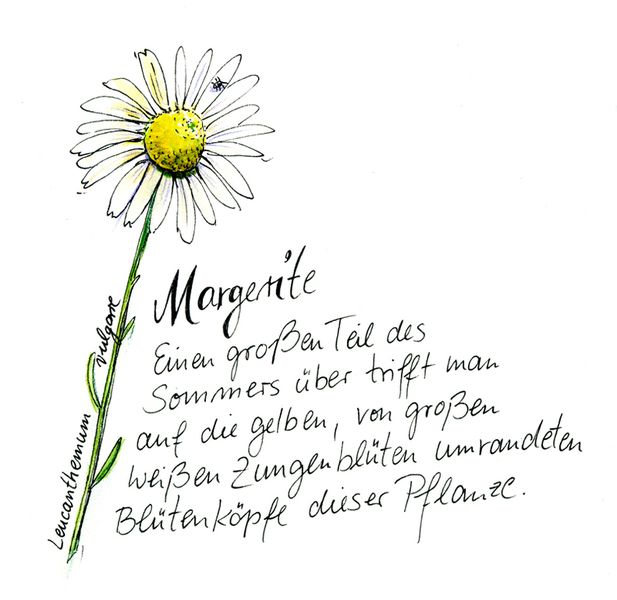 Margerite
Einen großen Teil des
Sommers über trifft man
auf die gelben, von großen
weißen Zungenblüten umrandeten
Blütenköpfe dieser Pflanze.
Leucanthemum vulgare